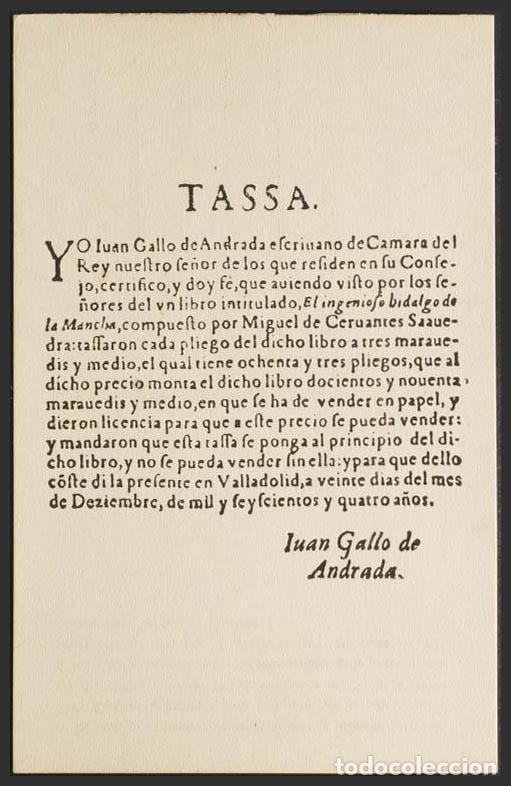 TASSA.
YO Iuan Gallo de Andrada escriuano de Camara del
Rey nuestro señor de los que residen en su Conse-
jo, certifico, y doy fè, que auiendo visto por los se-
ñores del vn libro intitulado, El ingenioso hidalgo de
la Mancha, compuesto por Miguel de Ceruantes Saaue-
dra: tassaron cada pliego del dicho libro a tres maraue-
dis y medio, el qual tiene ochenta y tres pliegos, que al
dicho precio monta el dicho libro docientos y nouenta
marauedis y medio, en que se ha de vender en papel, y
dieron licencia para que a este precio se pueda vender:
y mandaron que esta tassa se ponga al principio del di-
cho libro, y no se pueda vender sin ella: y para que dello
cõste di la presente en Valladolid, a veinte dias del mes
de Deziembre, de mil y seyscientos y quatro años.
Iuan Gallo de
Andrada.
todocoleccion